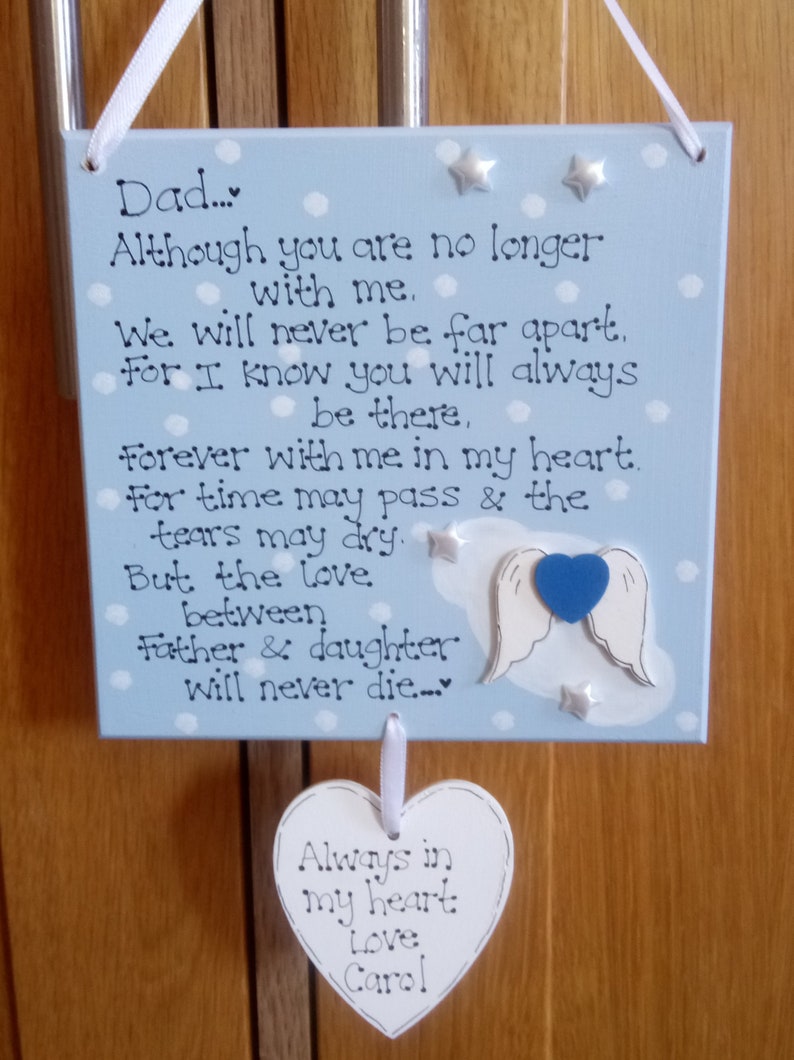 Dad...
Although you are no longer
with me,
We will never be far apart,
For I know you will always
be there,
Forever with me in my heart.
For time may pass & the
tears may dry.
But the love
between
Father & daughter
will never die...
Always in
my heart
Love
Carol